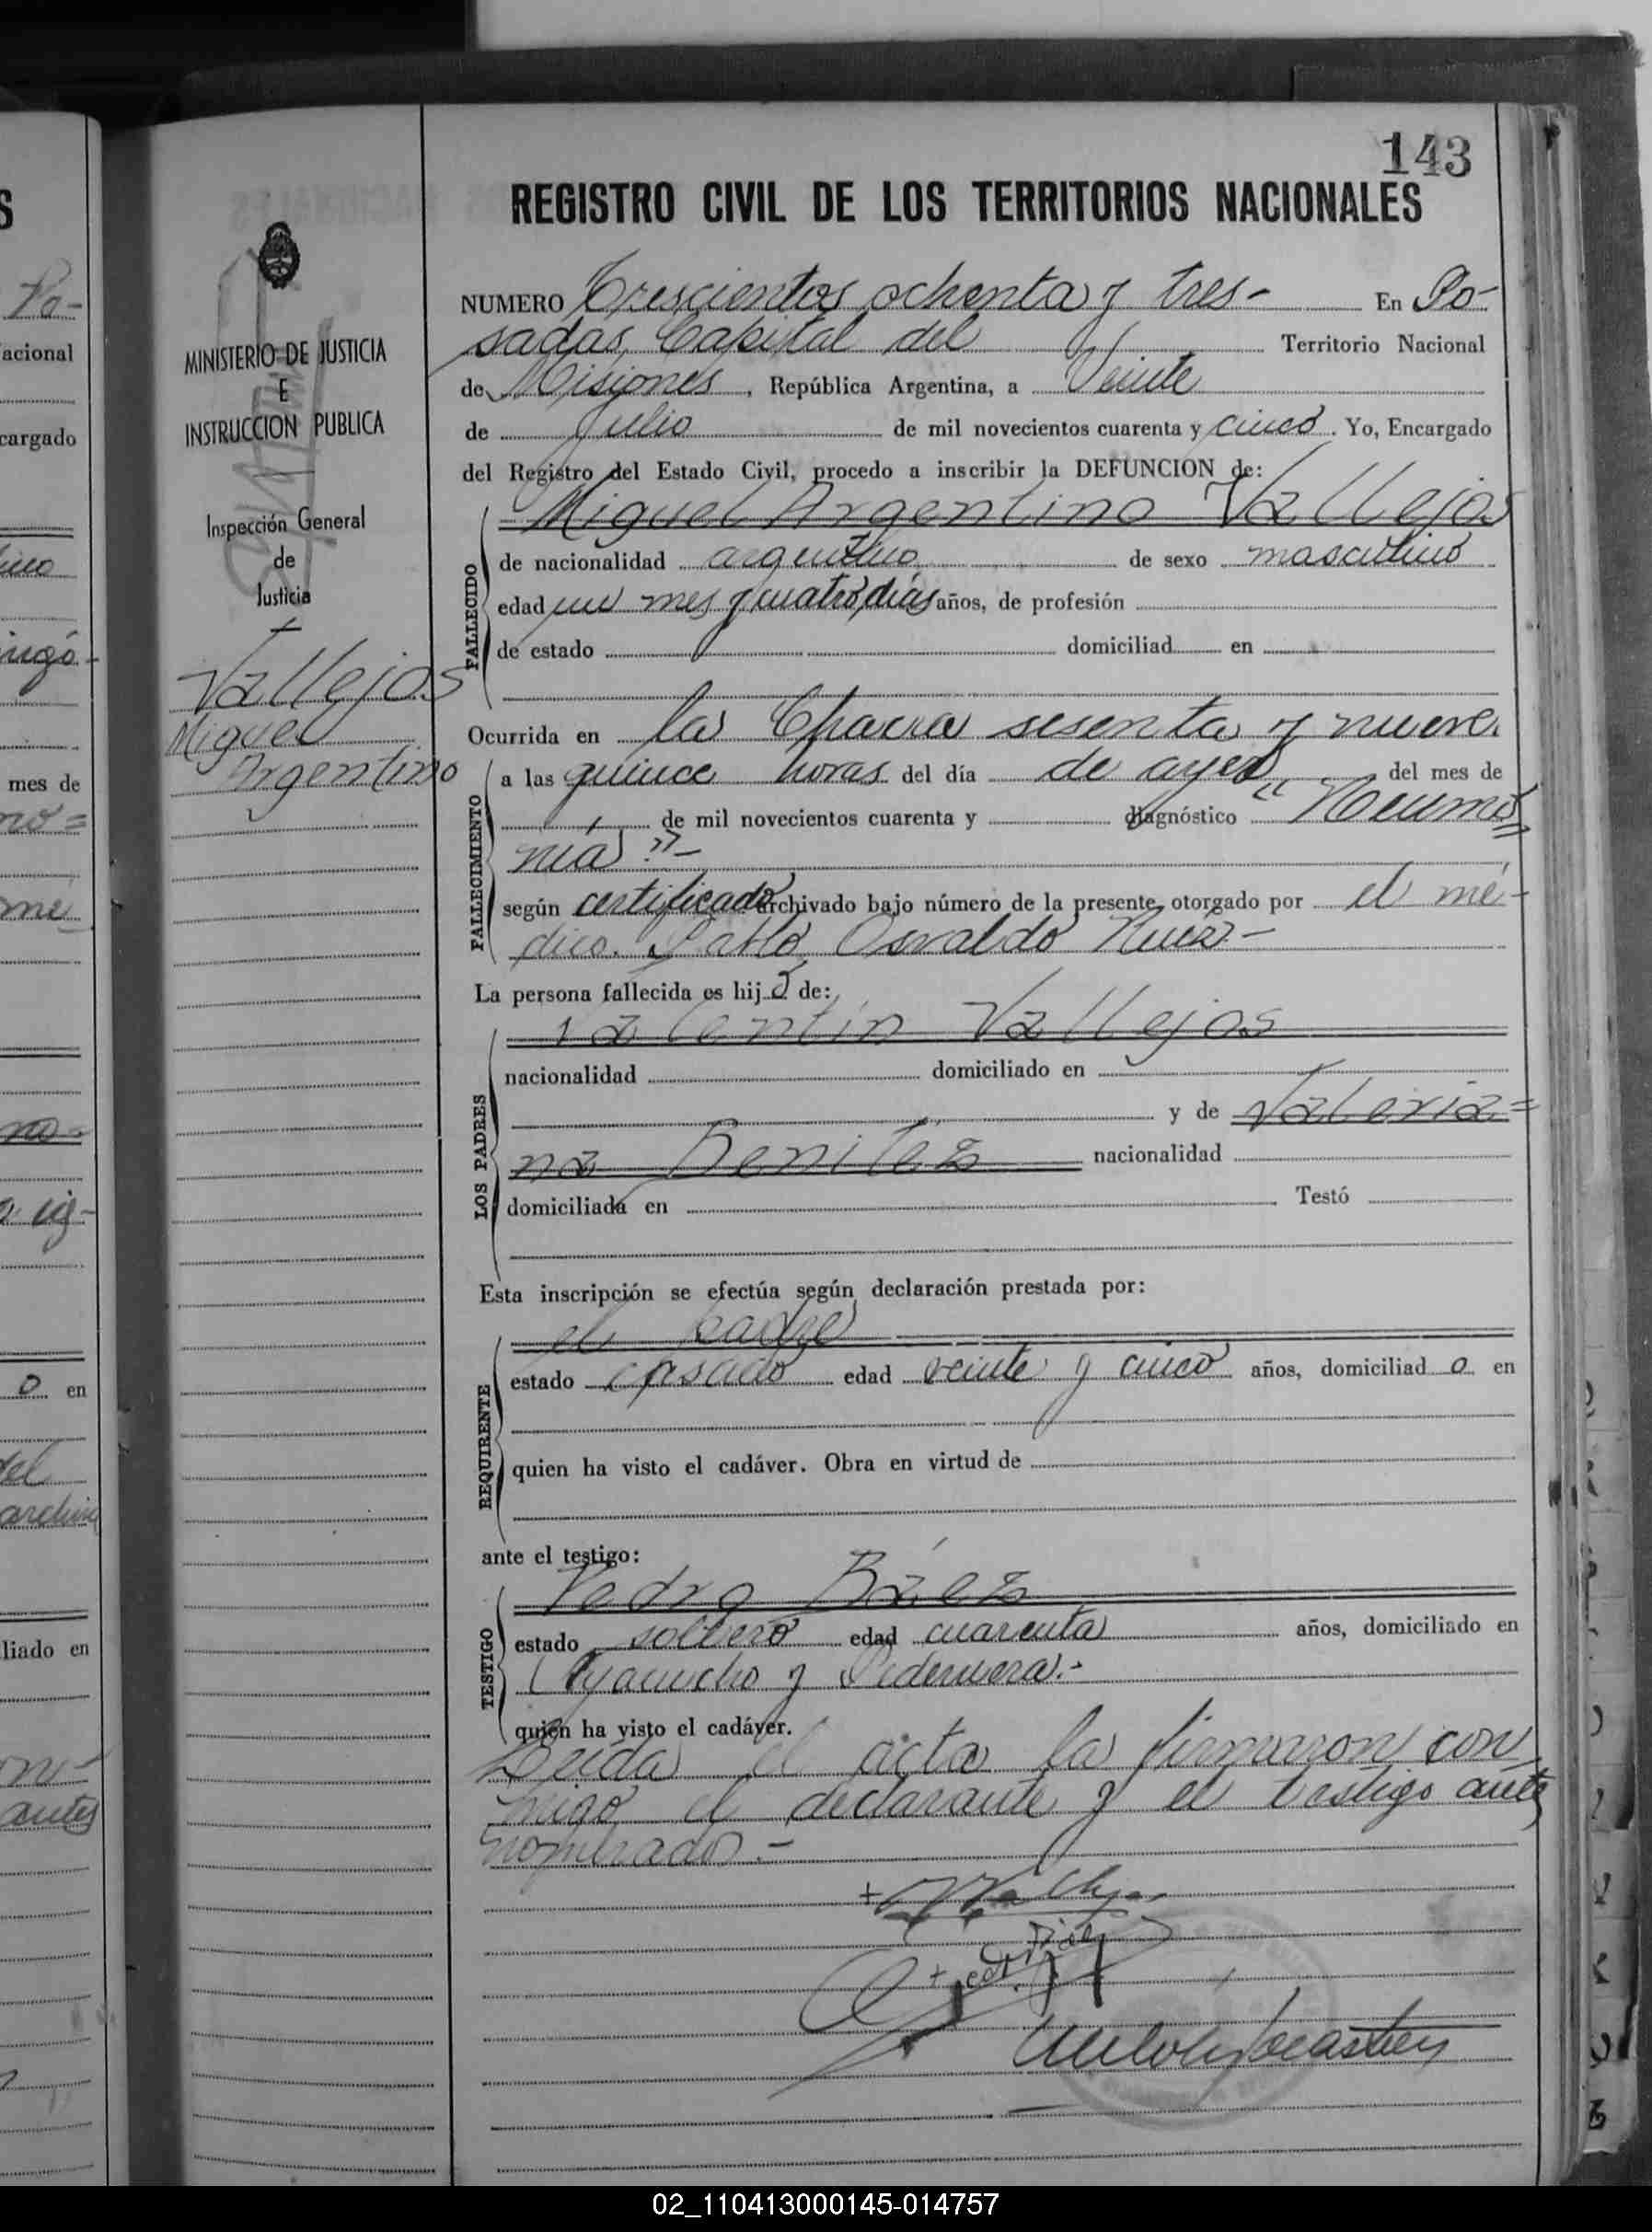 143
REGISTRO CIVIL DE LOS TERRITORIOS NACIONALES
MINISTERIO DE JUSTICIA
E
INSTRUCCION PUBLICA
Inspección General
de
Justicia
Vallejos
Miguel
Argentino
NUMERO Trescientos ochenta y tres- En Po-
sadas, Capital del Territorio Nacional
de Misiones, República Argentina, a Veinte
de Julio de mil novecientos cuarenta y cinco. Yo, Encargado
del Registro del Estado Civil, procedo a inscribir la DEFUNCION de:
Miguel Argentino Vallejos
FALLECIDO
de nacionalidad argentino de sexo masculino
edad un mes y cuatro días años, de profesión
de estado domiciliad en
Ocurrida en la Chacra sesenta y nueve.
FALLECIMIENTO
a las quince horas del día de ayer del mes de
de mil novecientos cuarenta y diagnóstico "Neumo=
nía".-
según certificado archivado bajo número de la presente, otorgado por el mé-
dico. Pablo Osvaldo
La persona fallecida es hijo de:
LOS PADRES
Valentín Vallejos
nacionalidad domiciliado en
y de Valeria=
na Benitez nacionalidad
domiciliada en Testó
Esta inscripción se efectúa según declaración prestada por:
REQUIRENTE
el padre
estado casado edad veinte y cinco años, domiciliad o en
quien ha visto el cadáver. Obra en virtud de
ante el testigo:
TESTIGO
Pedro Báez
estado soltero edad cuarenta años, domiciliado en
Ayacucho y Pedernera.-
quien ha visto el cadáver.
Leida el acta la firmaron con
migo el declarante y el testigo antes
nombrados.-
mes de
acional
cargado
o en
liado en
antes
02_110413000145-014757